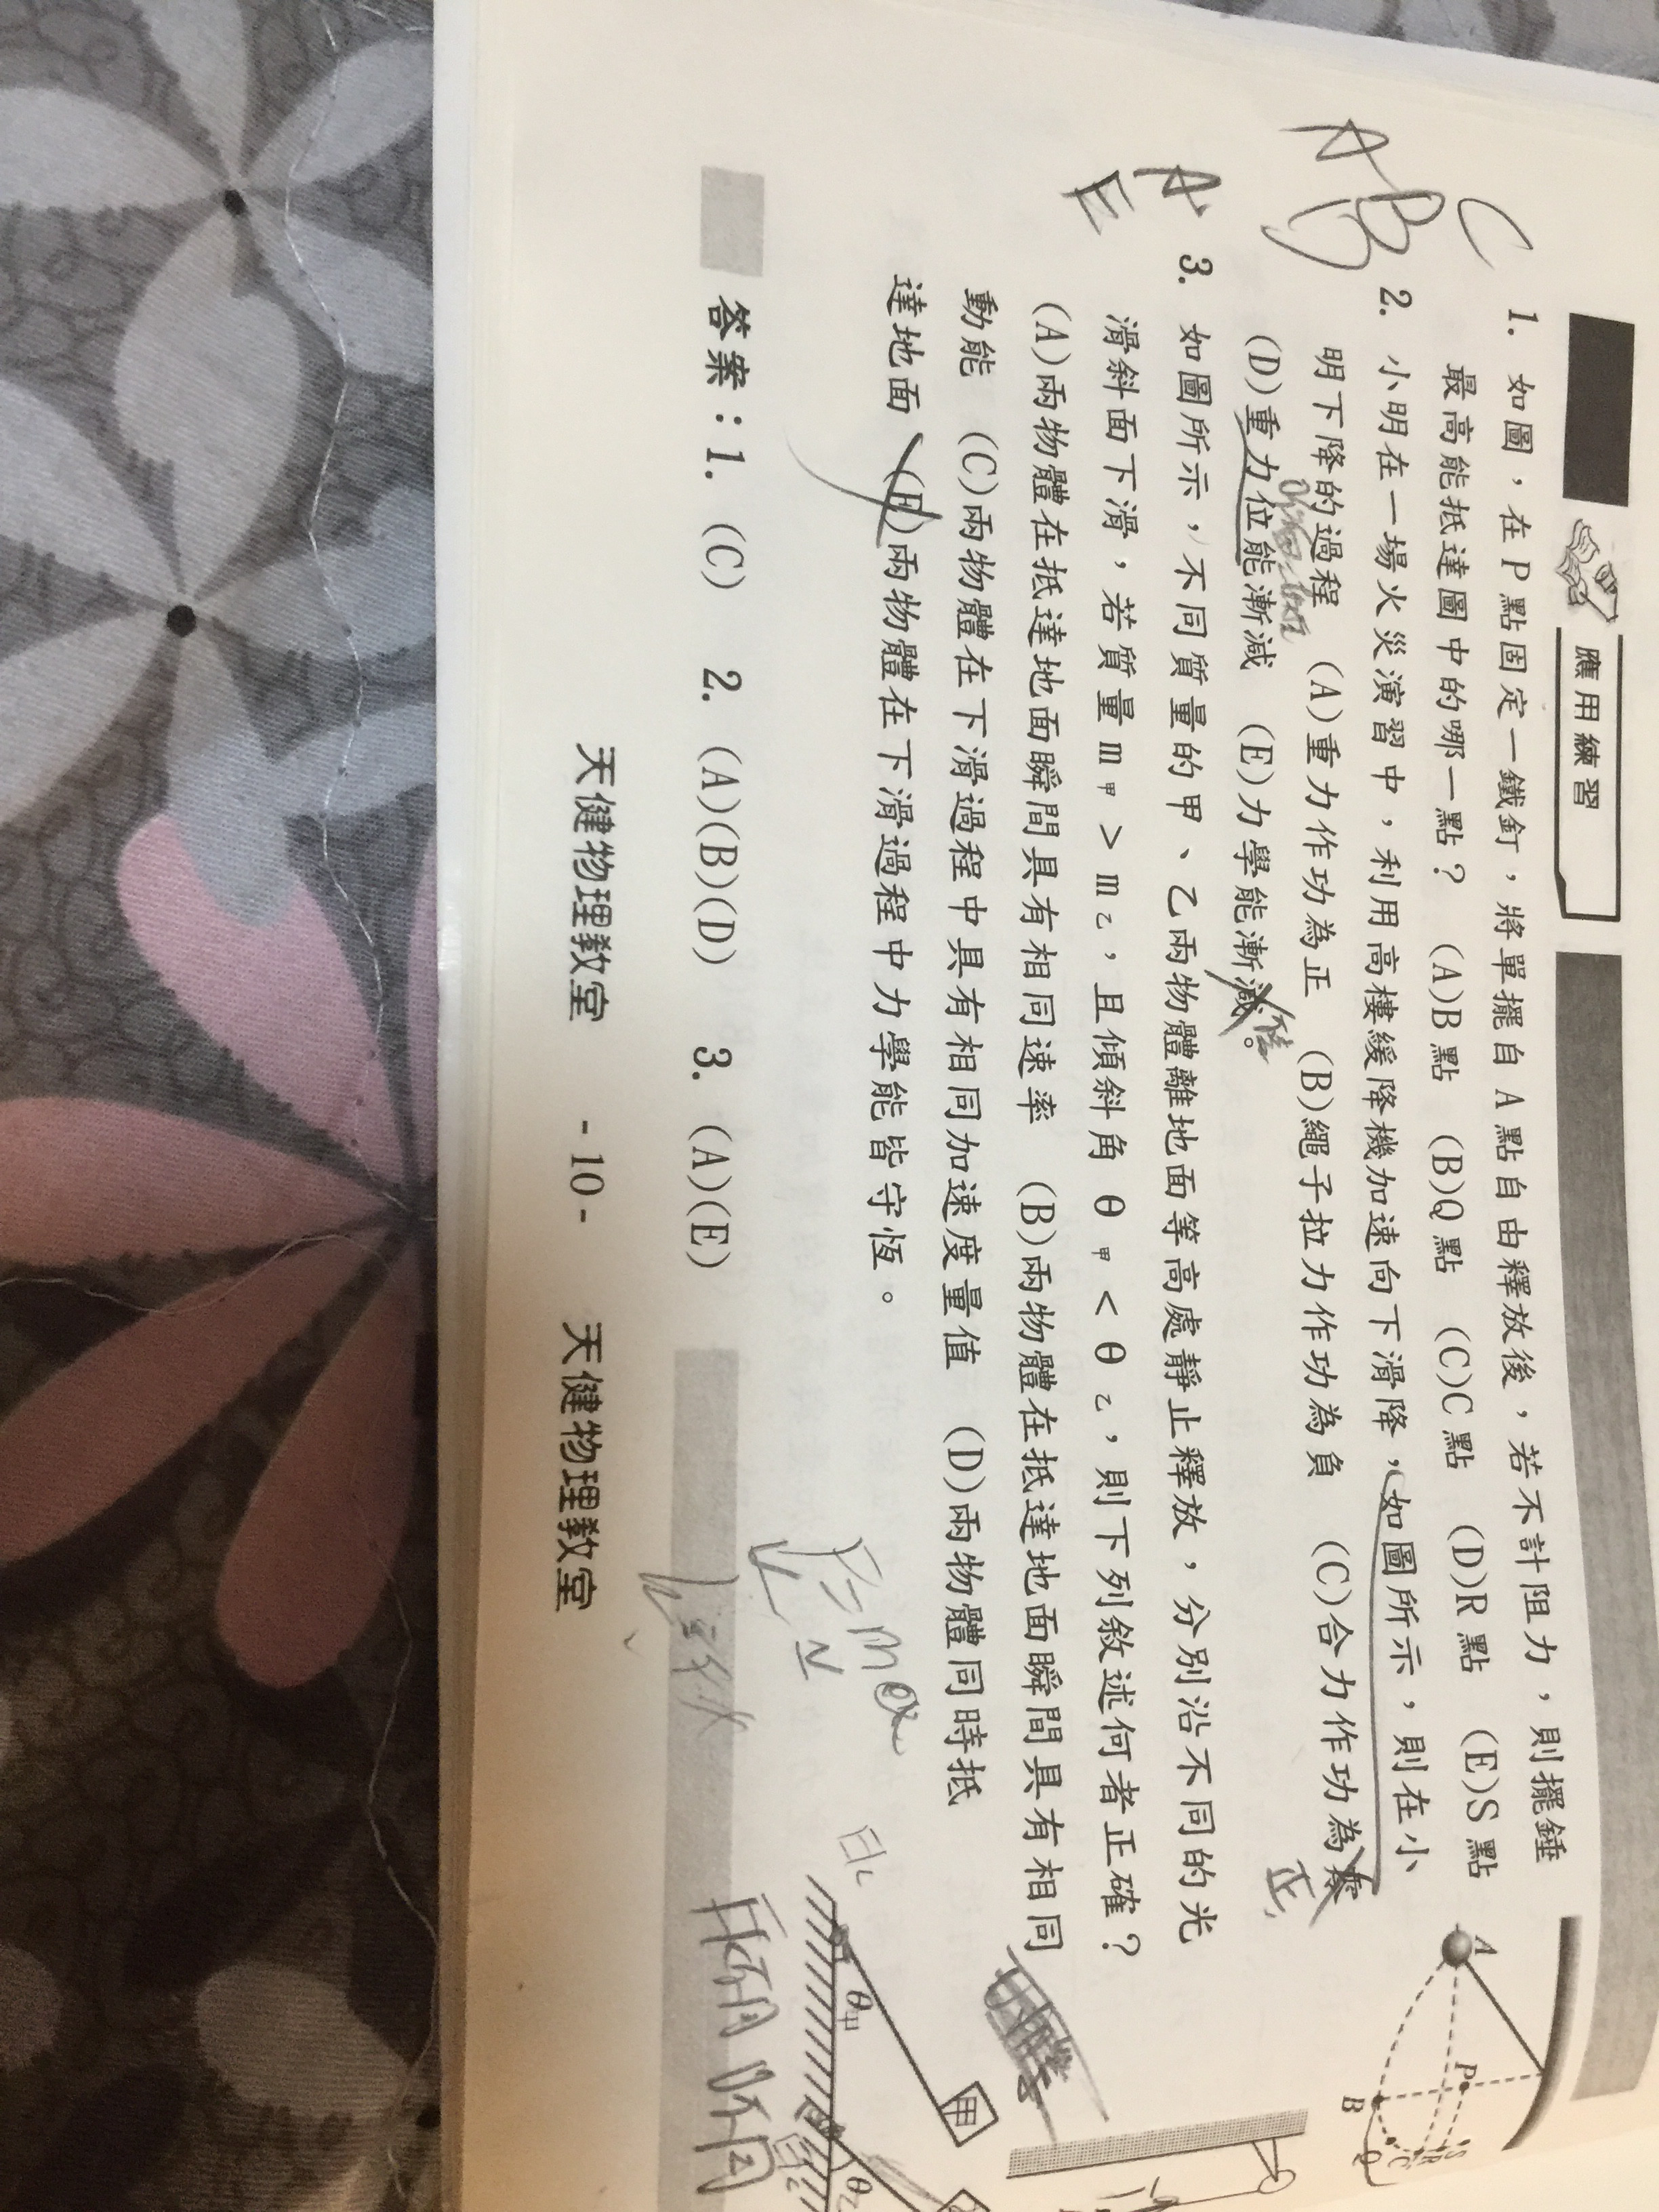 應用練習
C
1. 如圖，在P點固定一鐵釘，將單擺自A點自由釋放後，若不計阻力，則擺錘
最高能抵達圖中的哪一點？ (A)B點 (B)Q點 (C)C點 (D)R點 (E)S點
A
P
B
Q
C
R
S
AB
2. 小明在一場火災演習中，利用高樓緩降機加速向下滑降，如圖所示，則在小
明下降的過程 (A)重力作功為正 (B)繩子拉力作功為負 (C)合力作功為零
正
(D)重力位能漸減 (E)力學能漸減。
A
E
3. 如圖所示，不同質量的甲、乙兩物體離地面等高處靜止釋放，分別沿不同的光
滑斜面下滑，若質量m甲 > m乙，且傾斜角 θ甲 < θ乙，則下列敘述何者正確？
(A)兩物體在抵達地面瞬間具有相同速率 (B)兩物體在抵達地面瞬間具有相同
動能 (C)兩物體在下滑過程中具有相同加速度量值 (D)兩物體同時抵
達地面 (E)兩物體在下滑過程中力學能皆守恆。
甲
θ甲
θ乙
F=ma
答案：1. (C) 2. (A)(B)(D) 3. (A)(E)
天健物理教室 - 10 - 天健物理教室